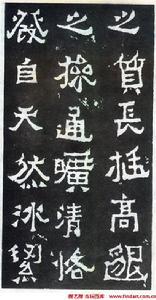 之質長挺高邈
之操通曠清恪
發自天然冰絜
www.findart.com.cn